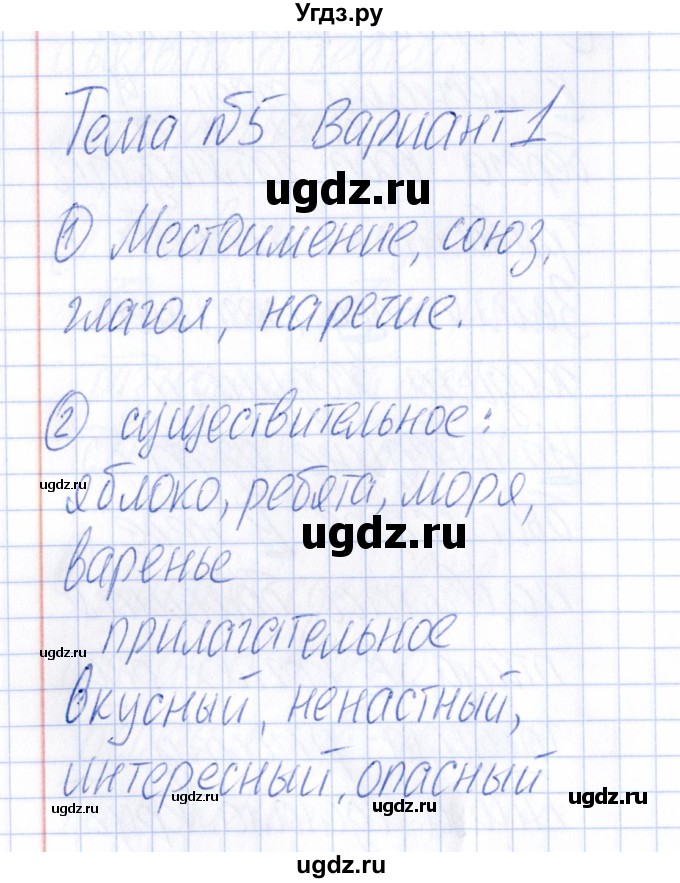 Угдз.ру
Тема №5 Вариант 1
ugdz.ru
1) Местоимение, союз,
глагол, наречие.
2) существительное:
ugdz.ru
яблоко, ребята, моря,
ugdz.ru
варенье
прилагательное
ugdz.ru
вкусный, ненастный,
интересный, опасный
ugdz.ru
ugdz.ru
ugdz.ru
ugdz.ru
ugdz.ru